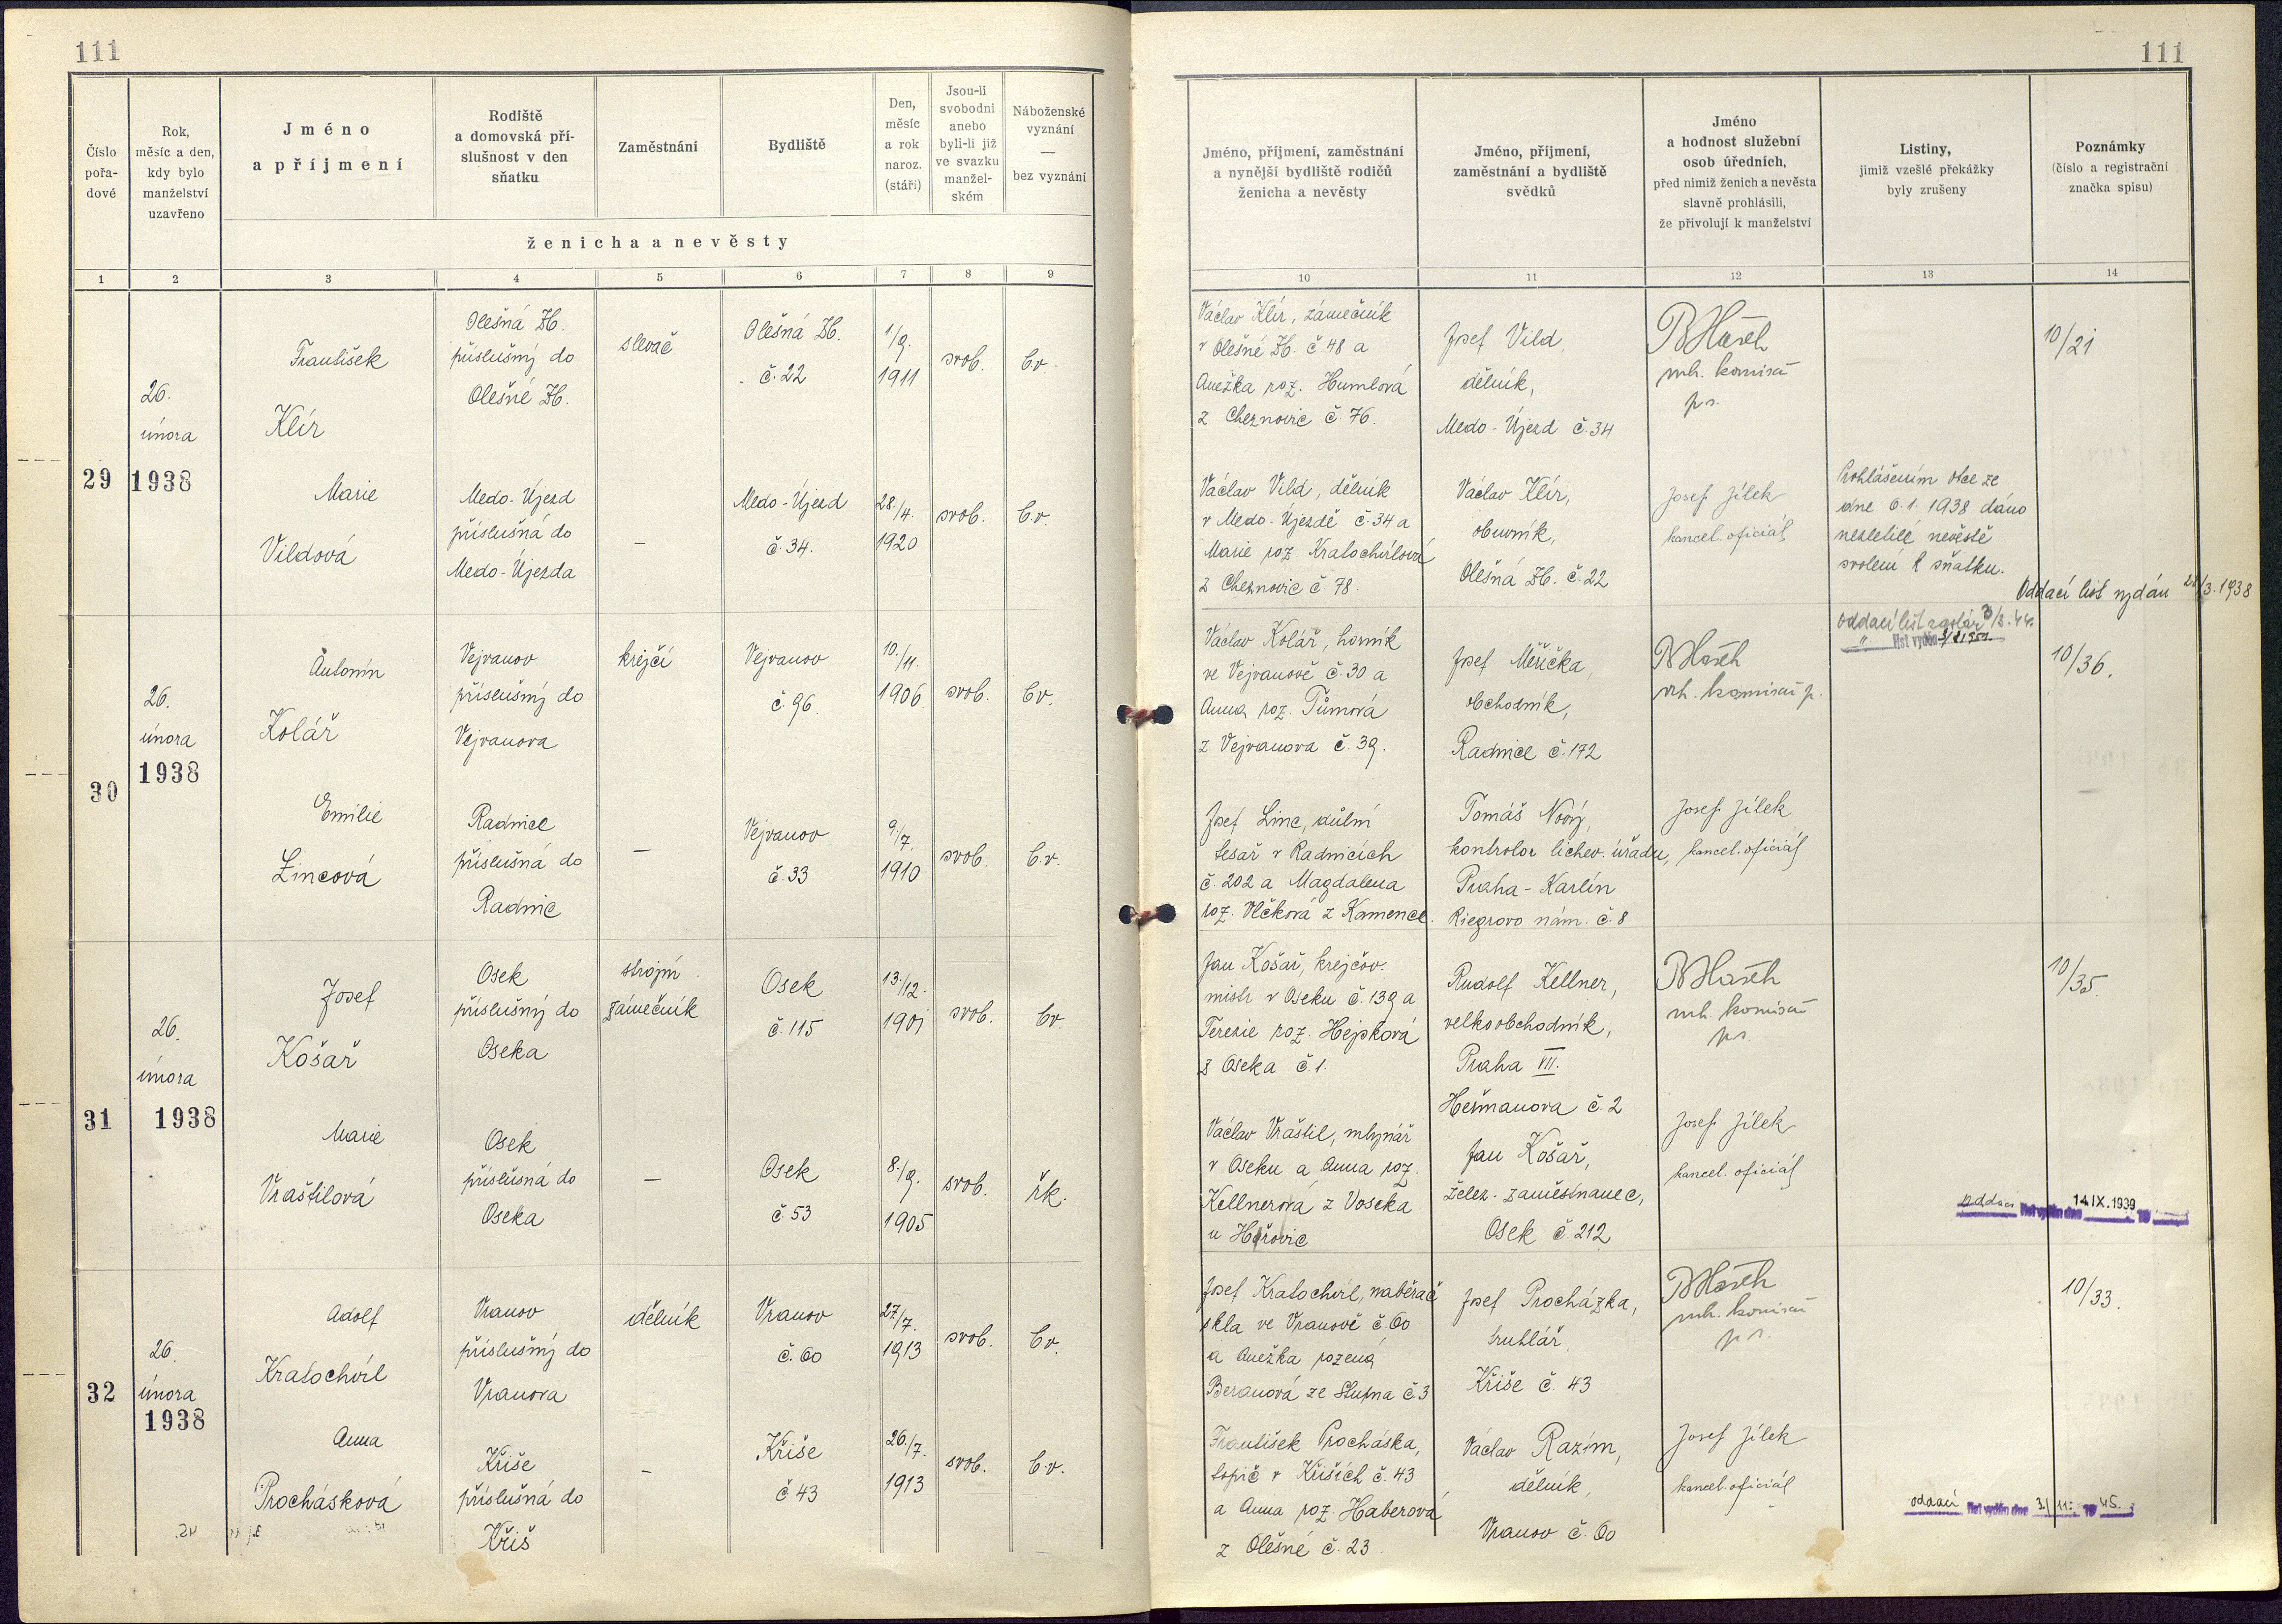 111
111
Číslo pořa- dové
Rok, měsíc a den, kdy bylo manželství uzavřeno
Jméno a příjmení
Rodiště a domovská pří- slušnost v den sňatku
Zaměstnání
Bydliště
Den, měsíc a rok naroz. (stáří)
Jsou-li svobodni anebo byli-li již ve svazku manžel- ském
Náboženské vyznání — bez vyznání
ženicha a nevěsty
Jméno, příjmení, zaměstnání a nynější bydliště rodičů ženicha a nevěsty
Jméno, příjmení, zaměstnání a bydliště svědků
Jméno a hodnost služební osob úředních, před nimiž ženich a nevěsta slavně prohlásili, že přivolují k manželství
Listiny, jimiž vzešlé překážky byly zrušeny
Poznámky (číslo a registrační značka spisu)
1 2 3 4 5 6 7 8 9 10 11 12 13 14
29
26.
února
1938
František
Klír
Olešná Zb.
příslušný do
Olešné Zb.
slevač
Olešná Zb.
č. 22
1./9.
1911
svob.
b.v.
Václav Klír, zámečník
v Olešné Zb. č. 48 a
Anežka roz. Humlová
z Cheznovic č. 76.
Josef Vild,
dělník,
Medo-Újezd č. 34
vrch. komisař
p.s.
10/21
Marie
Vildová
Medo-Újezd
příslušná do
Medo-Újezda
—
Medo-Újezd
č. 34.
28./4.
1920
svob.
b.v.
Václav Vild, dělník
v Medo-Újezdě č. 34 a
Marie roz. Kratochvílová
z Cheznovic č. 78.
Václav Klír,
obuvník,
Olešná Zb. č. 22
Josef Jílek
kancel. oficiál
Prohlášením otce ze
dne 6.1.1938 dáno
nezletilé nevěstě
svolení k sňatku.
Oddací list vydán 28/3.1938
30
26.
února
1938
Antonín
Kolář
Vejvanov
příslušný do
Vejvanova
krejčí
Vejvanov
č. 96.
10./11.
1906
svob.
b.v.
Václav Kolář, horník
ve Vejvanově č. 30 a
Anna roz. Tůmová
z Vejvanova č. 39.
Josef Měřička,
obchodník,
Radnice č. 172
vrch. komisař p.
oddací list
list vydán
10/36.
Emilie
Lincová
Radnice
příslušná do
Radnic
—
Vejvanov
č. 33
9./7.
1910
svob.
b.v.
Josef Linc, důlní
tesař v Radnicích
č. 202 a Magdalena
roz. Vlčková z Kamence.
Tomáš Nový,
kontrolor lichev. úřadu,
Praha-Karlín
Riegrovo nám. č. 8
Josef Jílek
kancel. oficiál
31
26.
února
1938
Josef
Košař
Osek
příslušný do
Oseka
strojní
zámečník
Osek
č. 115
13./12.
1901
svob.
bv.
Jan Košař, krejčov.
mistr v Oseku č. 139 a
Terezie roz. Hejpková
z Oseka č. 1.
Rudolf Kellner,
velkoobchodník,
Praha VII.
Heřmanova č. 2
vrch. komisař
p.s.
10/35.
Marie
Vraštilová
Osek
příslušná do
Oseka
—
Osek
č. 53
8./9.
1905
svob.
řk.
Václav Vraštil, mlynář
v Oseku a Anna roz.
Kellnerová z Voseka
u Hořovic
Jan Košař,
želez. zaměstnanec,
Osek č. 212
Josef Jílek
kancel. oficiál
oddací list vydán dne 14 IX. 1939 19
32
26.
února
1938
Adolf
Kratochvíl
Vranov
příslušný do
Vranova
dělník
Vranov
č. 60
27/7.
1913
svob.
b.v.
Josef Kratochvíl, naběrač
skla ve Vranově č. 60
a Anežka rozená
Beranová ze Stupna č 3
Josef Procházka,
truhlář,
Kříše č. 43
vrch. komisař
p.s.
10/33.
Anna
Procházková
Kříše
příslušná do
Kříš
—
Kříše
č 43
26./7.
1913
svob.
b.v.
František Procházka,
topič v Kříších č. 43
a Anna roz. Haberová
z Olešné č. 23.
Václav Razím,
dělník,
Vranov č. 60
Josef Jílek
kancel. oficiál
oddací list vydán dne 3/11. 1945.